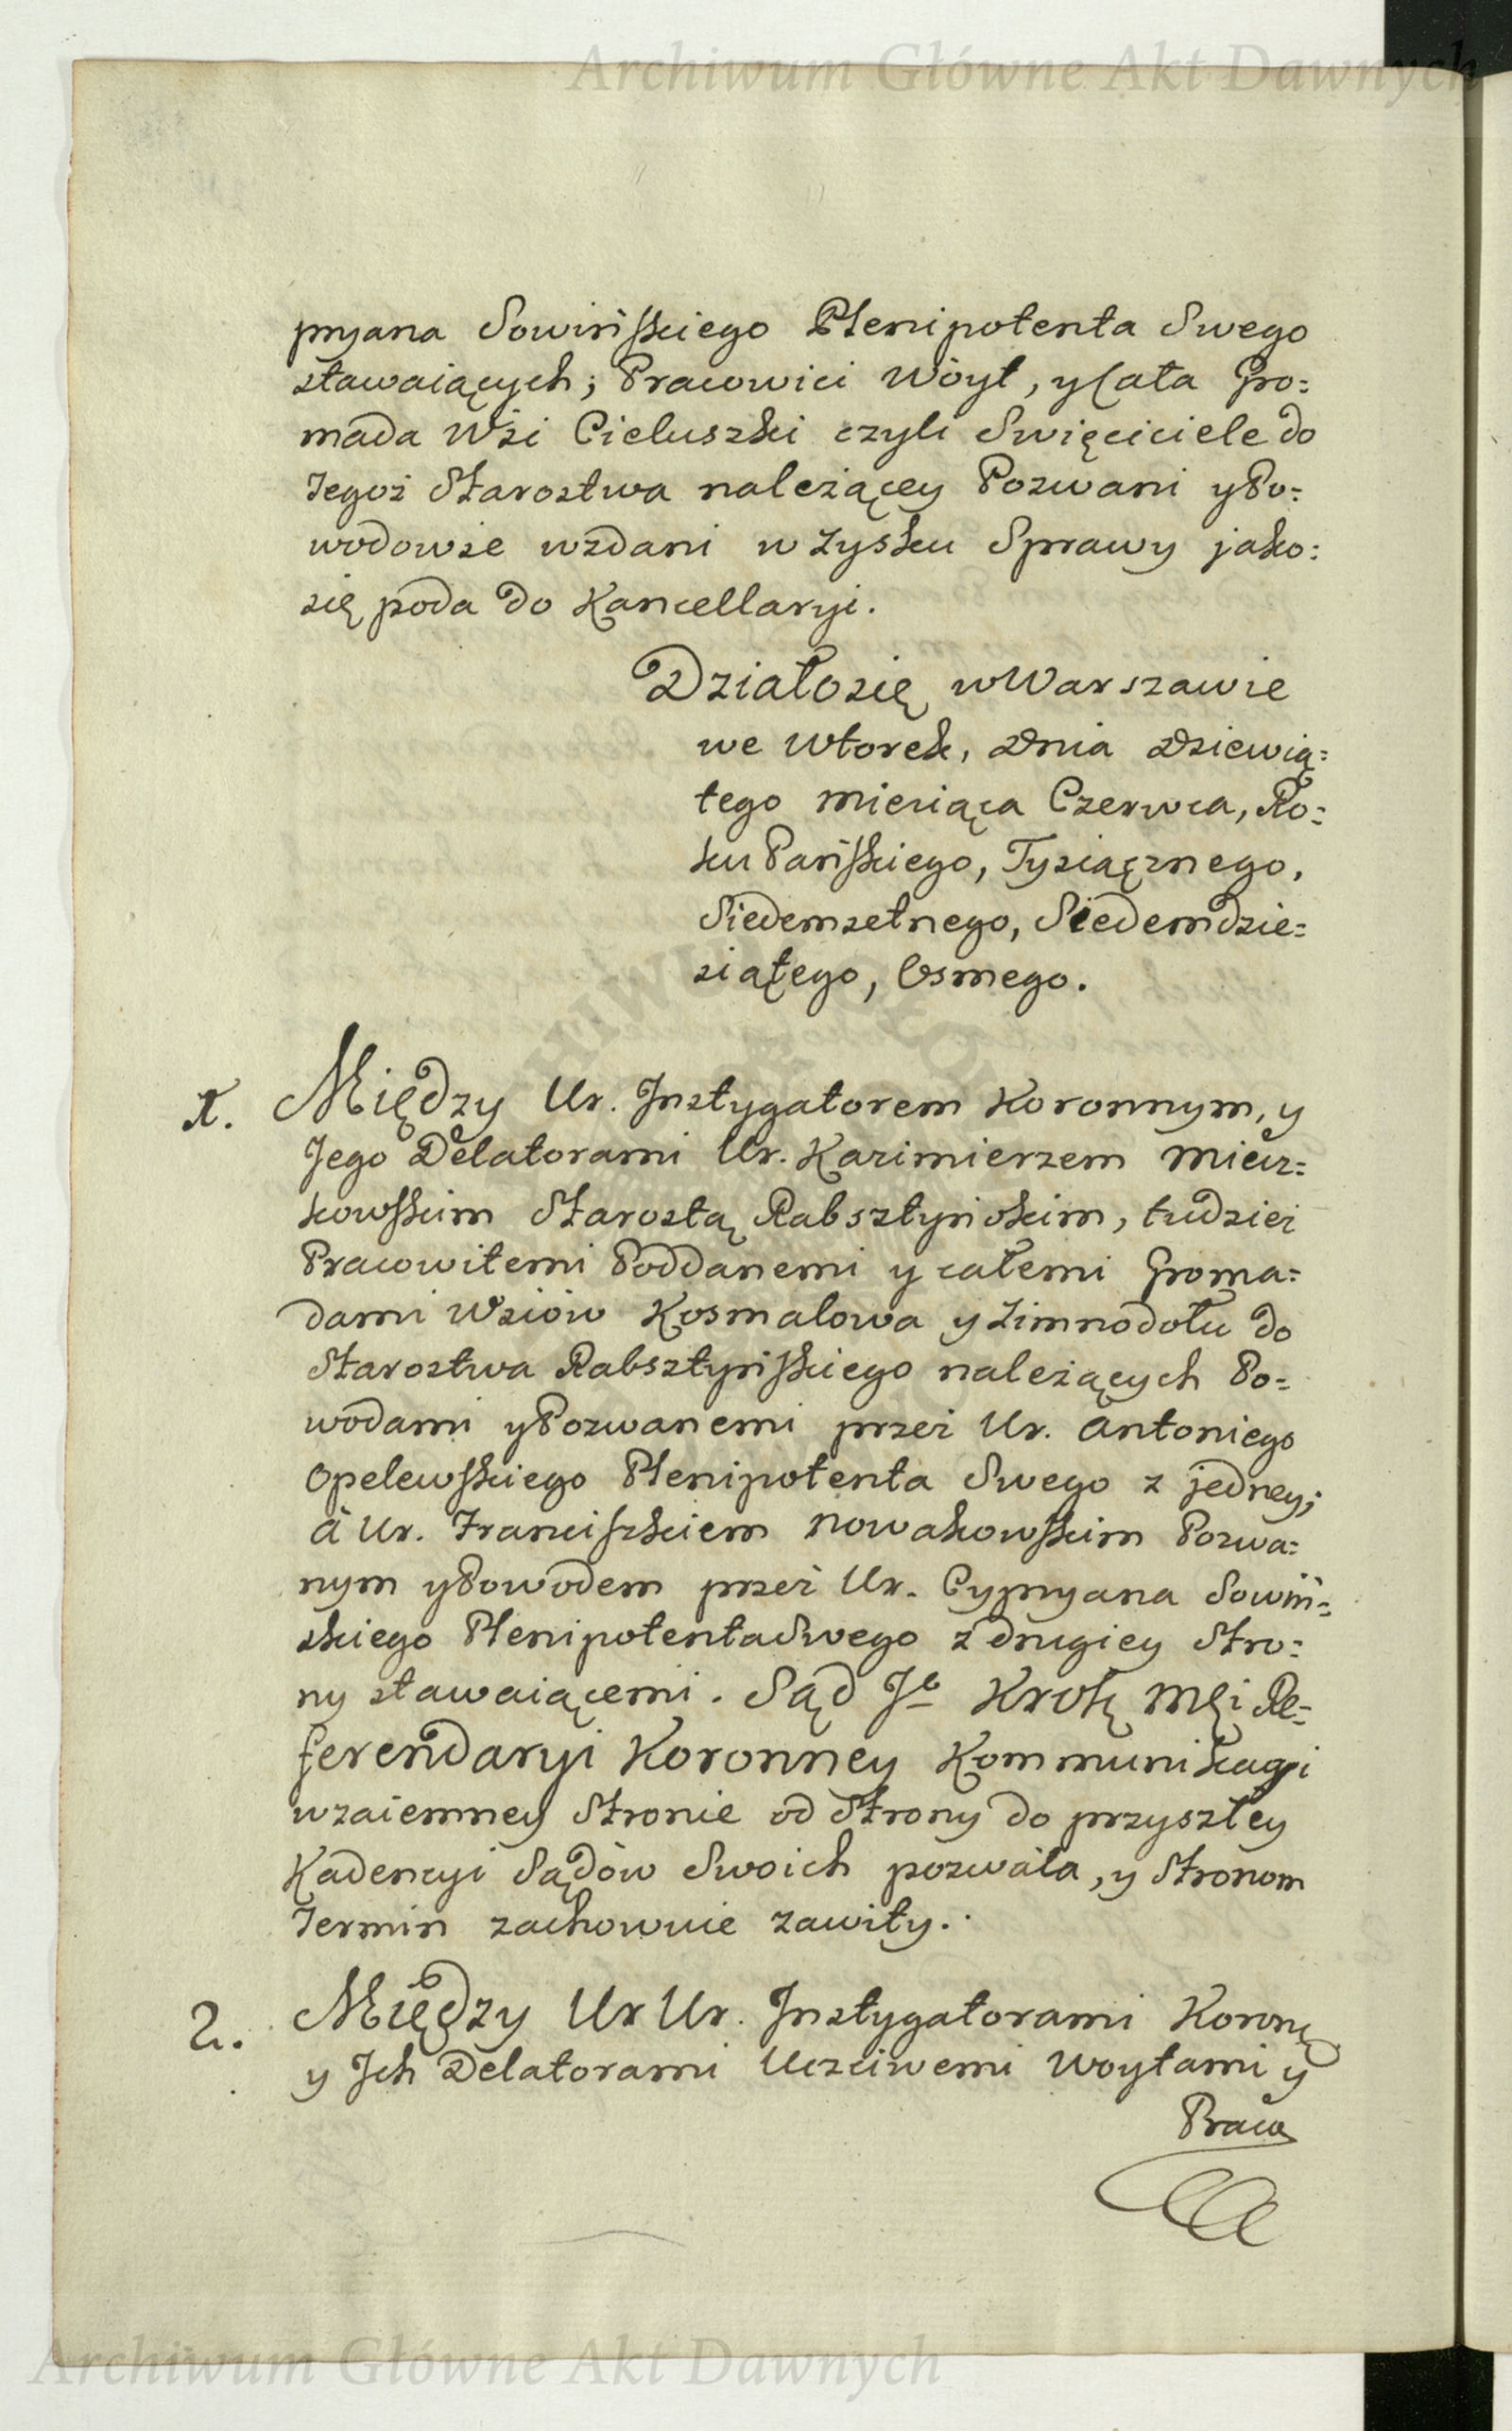 Archiwum Główne Akt Dawnych
pryana Sowińskiego Plenipotenta Swego
stawaiących; Pracowici Wóyt, y Cała Gro=
mada Wsi Cieluszki czyli Swięciciele do
Tegoż Starostwa należącey Pozwani y Po=
wodowie wzdani w zysku Sprawy jako=
się poda do Kancellaryi.
Działo się w Warszawie
we Wtorek, Dnia Dziewią=
tego Miesiąca Czerwca, Ro=
ku Pańskiego, Tysiącznego,
Siedemsetnego, Siedemdzie=
siątego, Osmego.
1. Między Ur. Instygatorem Koronnym, y
Jego Delatorami Ur. Kazimierzem Miecz=
kowskim Starostą Rabsztyńskim, tudzież
Pracowitemi Poddanemi y całemi Groma=
dami Wsiów Kosmalowa y Zimnodołu do
Starostwa Rabsztyńskiego należących Po=
wodami y Pozwanemi przez Ur. Antoniego
Opelewskiego Plenipotenta Swego z jedney;
à Ur. Franciszkiem Nowakowskim Pozwa=
nym y Powodem przez Ur. Cypryana Sowiń=
skiego Plenipotenta Swego z drugiey Stro=
ny stawaiącemi. Sąd Je Krolę Męi Re=
ferendaryi Koronney Kommunikacyi
wzaiemney Stronie od Strony do przyszłey
Kadencyi Sądów Swoich pozwala, y Stronom
Termin zachowuie zawity.
2. Między Ur Ur. Instygatorami Koronę
y Ich Delatorami Uczciwemi Woytami y
Praco
Archiwum Główne Akt Dawnych